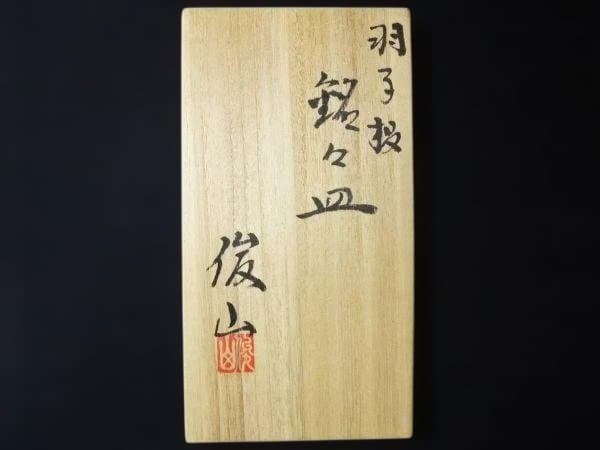 羽子板
銘々皿
俊山
俊山